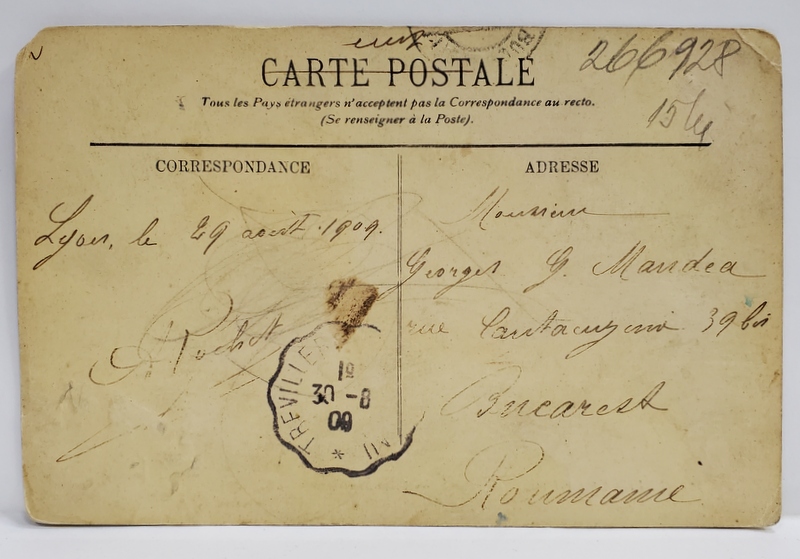 CARTE POSTALE
266928
Tous les Pays étrangers n'acceptent pas la Correspondance au recto.
(Se renseigner à la Poste).
15 lei
CORRESPONDANCE
ADRESSE
Lyon, le 29 août 1909.
Monsieur
Georges G. Mandea
rue Cantacuzino 39 bis
Bucarest
Roumanie
TREVILLE
1º
30 - 8
09
*